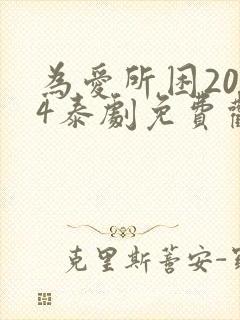 為愛所困20
4泰劇免費
克里斯蒈安-